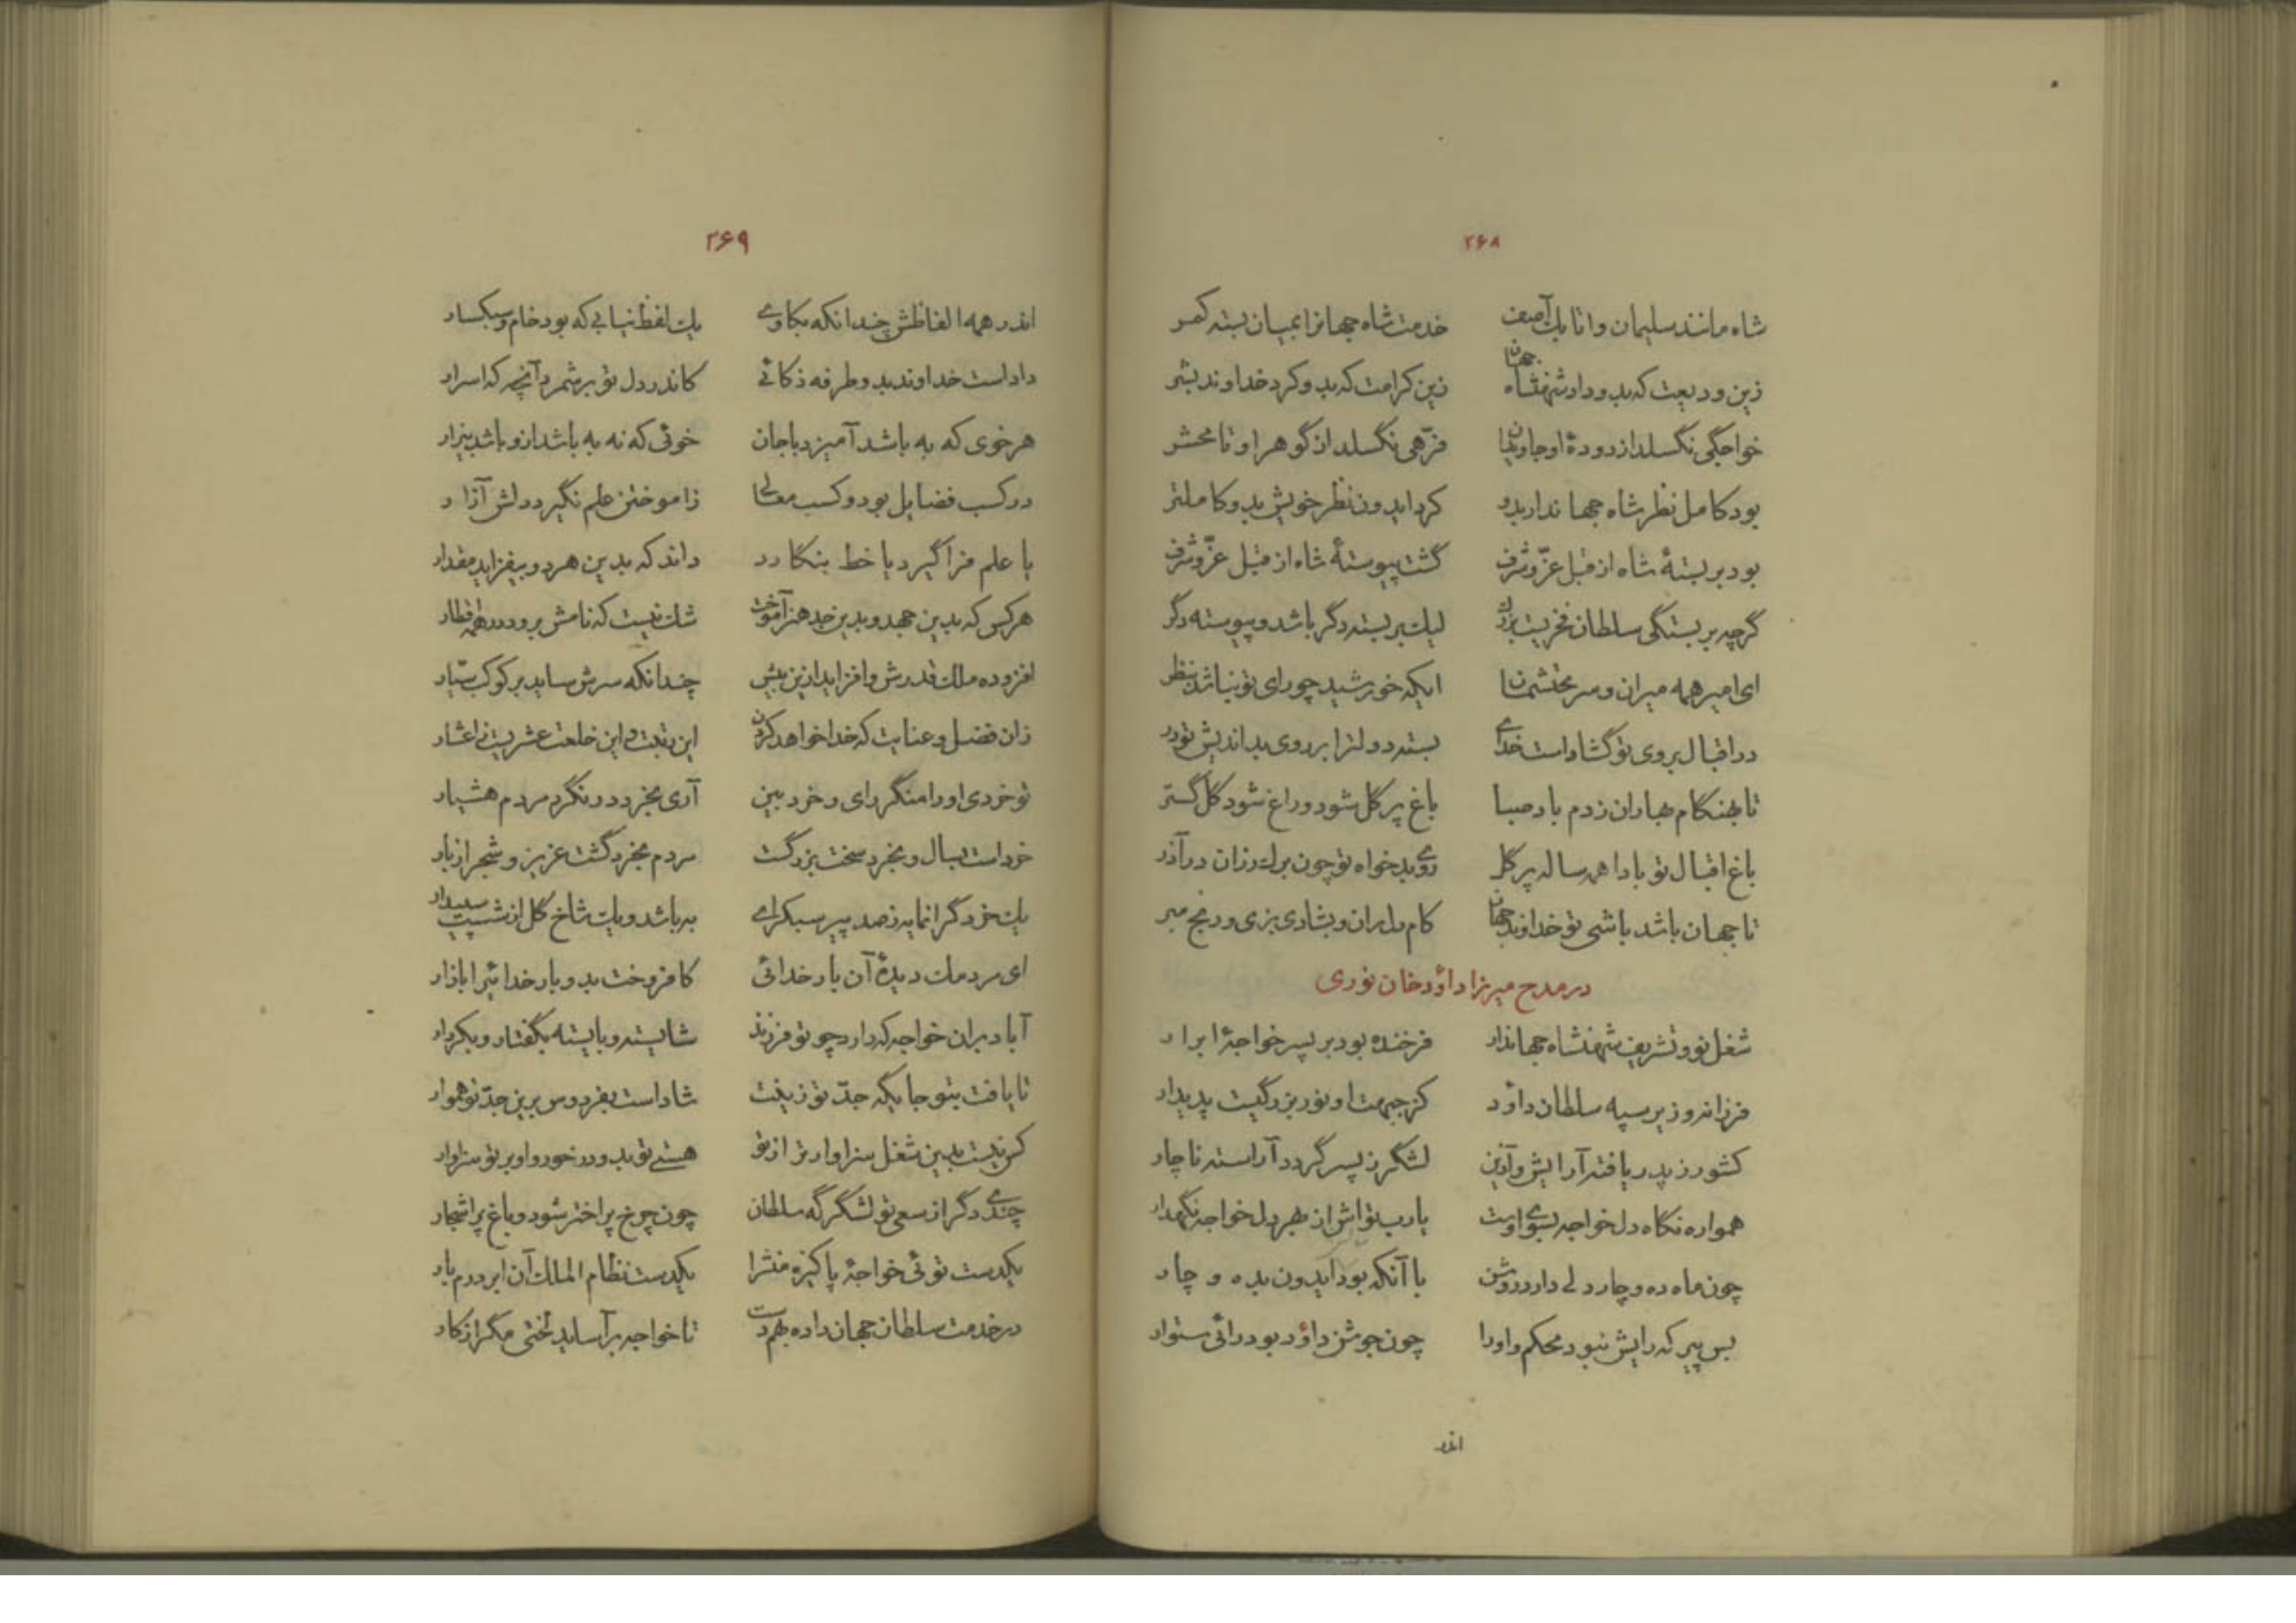 ۲۶۸
شاه مانند سلیمان و اتابک آصف خدمت شاه جهانرا بمیان بسته کمر
زین ودیعت که بدو داد شهنشاه جهان زین کرامت که بدو کرد خداوند بشر
خواجگی نگسلد از دودهٔ او جاویدان فرّهی نگسلد از گوهر او تا محشر
بود کامل نظر شاه جهاندار بدو کرد ایدون نظر خویش بدو کاملتر
بود بربستهٔ شاه از قبل عزّ و شرف گشت پیوستهٔ شاه از قبل عزّ و شرف
گرچه بربستگی سلطان فخریست بزرگ لیک بربسته دگر باشد و پیوسته دگر
ای امیر همه میران و سر محتشمان ایکه خورشید چو رای تو نباشد بنظر
در اقبال بروی تو گشاداست خدای بسته دولت را بر روی بداندیش تو در
تا بهنگام بهاران ز دم باد صبا باغ پر گل شود و راغ شود گل گستر
باغ اقبال تو بادا همه ساله پر گل روی بدخواه تو چون برک رزان در آذر
تا جهان باشد باشی تو خداوند جهان کام دل ران و بشادی بزی و رنج مبر
در مدح میرزا داؤد خان نوری
شغل نو و تشریف شهنشاه جهاندار فرخنده بود بر پسر خواجهٔ ابرار
فرزانه وزیر سپه سلطان داؤد کز جبهت او نور بزرگیست پدیدار
کشور ز پدر یافته آرایش و آذین لشگر ز پسر گردد آراسته ناچار
همواره نگاه دل خواجه بسوی اوست یارب تو اش از بهر دل خواجه نگهدار
چون ماه ده و چار دلی دارد روشن با آنکه بود ایدون بده و چار
بس پیر که رایش نبود محکم و اورا چون جوشن داؤد بود رائی ستوار
اندر
۲۶۹
اندر همه الفاظش چندانکه بکاوی یک لفظ نیابی که بود خام و سبکسار
داداست خداوند بدو طرفه ذکائی کاندر دل تو برشمرد آنچه که اسرار
هر خوی که به باشد آمیزد با جان خوئی که نه به باشد ازو باشد بیزار
در کسب فضایل بود و کسب معالی ز آموختن علم نگیرد دلش آزار
یا علم فرا گیرد یا خط بنگارد داند که بدین هر دو بیفزاید مقدار
هر کس که بدین جهد و بدین جد هنر آموخت شک نیست که نامش برود در همه اقطار
افزوده ملک قدرش و افزاید ازین بیش چندانکه سرش ساید بر کوکب سیّار
زان فضل و عنایت که خدا خواهد کردن این رتبت و این خلعت عشریست ز اعشار
تو خردی او را منگر رای و خرد بین آری بخرد در نگرد مردم هشیار
خرداست بسال و بخرد سخت بزرگست مردم بخرد گشت عزیز و شجر از بار
یک خرد گرانمایه ز صد پیر سبکرای به باشد و یک شاخ گل از شصت سپیدار
ای مردمک دیدهٔ آن بار خدائی کافروخت بدو بار خدائیرا بازار
آباد بران خواجه که دارد چو تو فرزند شایسته و بایسته بگفتار و بکردار
تا یافت بتو جایگه جدّ تو زینت شاداست بفردوس برین جدّ تو هموار
کس نیست بدین شغل سزاوارتر از تو هستی تو بدو در خور و او بر تو سزاوار
چندی دگر از سعی تو لشگرگه سلطان چون چرخ پر اختر شود و باغ پر اشجار
یکدست توئی خواجهٔ پاکیزه منشرا یکدست نظام الملک آن ابر درم بار
در خدمت سلطان جهان داده بهم دست تا خواجه برآساید لختی مگر از کار